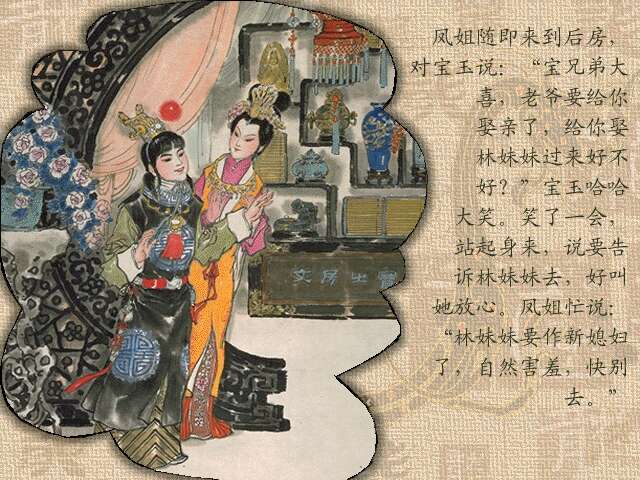 凤姐随即来到后房，
对宝玉说：“宝兄弟大
喜，老爷要给你
娶亲了，给你娶
林妹妹过来好不
好？”宝玉哈哈
大笑。笑了一会，
站起身来，说要告
诉林妹妹去，好叫
她放心。凤姐忙说：
“林妹妹要作新媳妇
了，自然害羞，快别
去。”
文房之宝